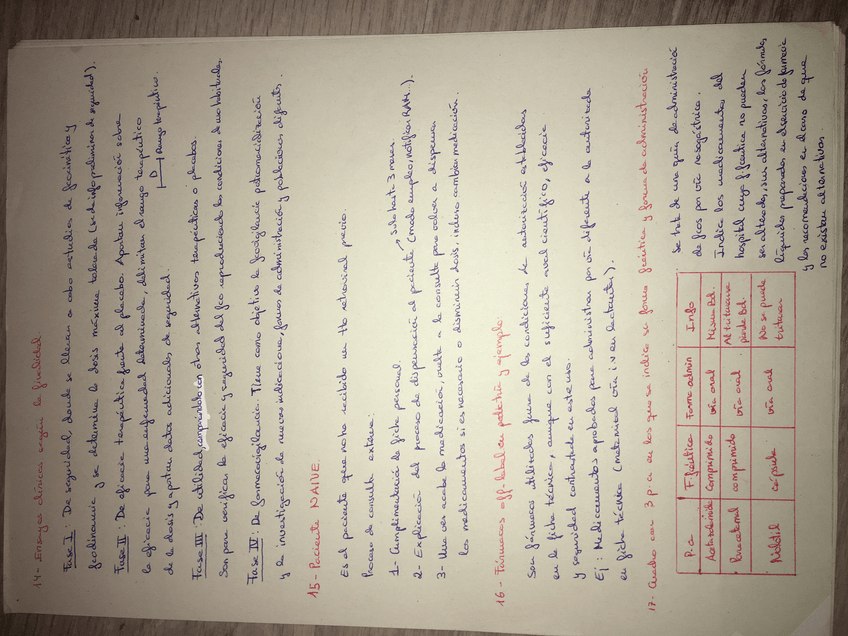 14- Ensayos clínicos según la finalidad.
Fase I: De seguridad, donde se llevan a cabo estudios de fcocinética y
fcodinamia y se determina la dosis máxima tolerada (se da info preliminar de seguridad).
Fase II: De eficacia terapéutica frente al placebo. Aportan información sobre
la eficacia para una enfermedad determinada, delimitan el rango terapéutico
de la dosis y aportan datos adicionales de seguridad. D Rango terapéutico.
Fase III: De utilidad, comparándolo con otras alternativas terapéuticas o placebos
Son para verificar la eficacia y seguridad del fco reproduciendo las condiciones de uso habituales,
Fase IV: De farmacovigilancia. Tiene como objetivo la fcovigilancia postcomercialización
y la investigación de nuevas indicaciones, formas de administración y poblaciones, difunts.
15- Paciente NAIVE.
Es el paciente que no ha recibido un tto retroviral previo.
Proceso de consulta externa:
1- Cumplimentación de ficha personal. Sida hasta 3 meses
2- Explicación del proceso de dispensación al paciente (modo empleo, notificar RAM...).
3- Una vez acabe la medicación, vuelve a la consulta para volver a dispensar
los medicamentos si es necesario o disminuir dosis, incluso cambiar medicación.
16- Fármacos off-label en pediatría y ejemplo:
Son fármacos utilizados fuera de las condiciones de autorización establecidas
en la ficha técnica, aunque con el suficiente aval científico, eficacia
y seguridad contrastada en este uso.
Ej: Medicamentos aprobados para administrar por vía diferente a la autorizada
en ficha técnica (metamizol vía iv en lactantes).
17- Cuadro con 3 p.a en los que se indica su forma fcéutica y forma de administración
P.a F.fcéutica Forma admin Info
Acetazolamida Comprimido vía oral Misma Bd.
Paracetamol comprimido vía oral Al triturarse pierde Bd.
Nolotil cápsula vía oral No se puede triturar
Se trata de una guía de administración
de fcos por vía nasogástrica.
Indica los medicamentos del
hospital cuya f.fcéutica no pueden
ser alteradas, sus alternativas, las fórmulas
líquidas preparadas en el servicio de farmacia
y las recomendaciones en el caso de que
no existan alternativas.